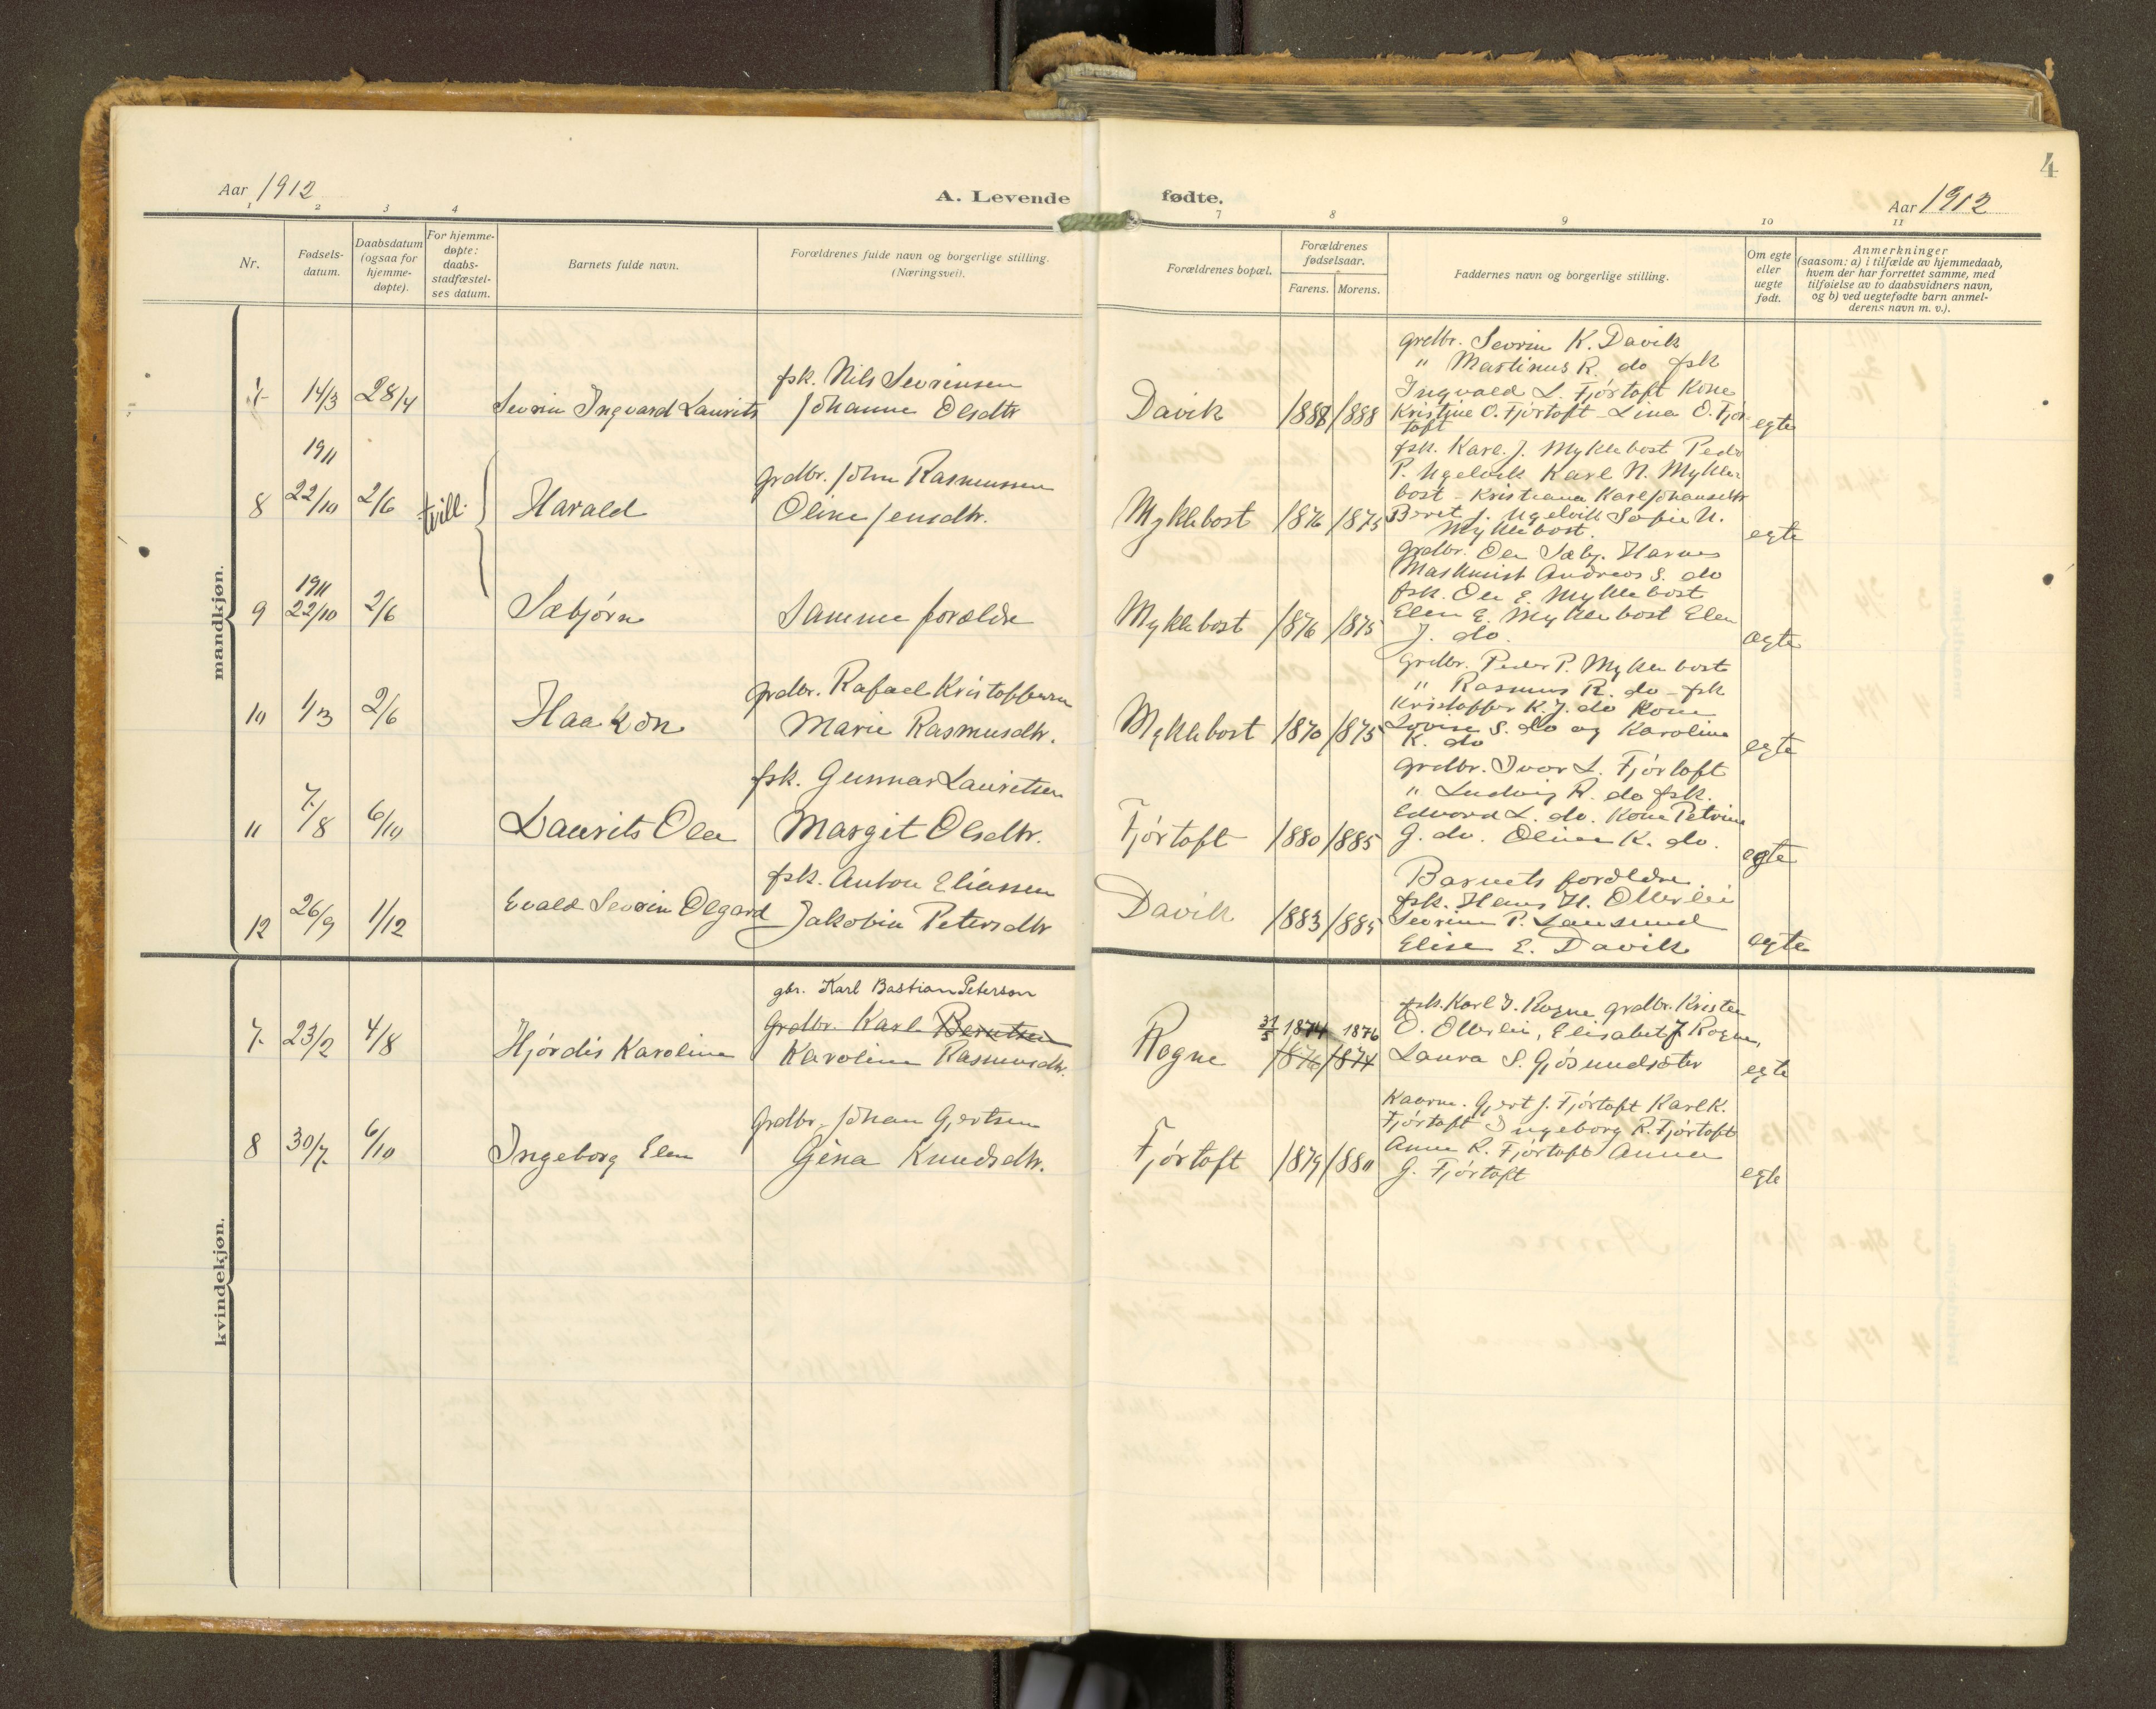 4
Aar 1912
A. Levende fødte.
Aar 1912
1 2 3 4 7 8 9 10 11
Nr.
Fødsels-
datum.
Daabsdatum
(ogsaa for
hjemme-
døpte).
For hjemme-
døpte:
daabs-
stadfæstel-
ses datum.
Barnets fulde navn.
Forældrenes fulde navn og borgerlige stilling.
(Næringsvei).
Forældrenes bopæl.
Forældrenes
fødselsaar.
Farens. Morens.
Faddernes navn og borgerlige stilling.
Om egte
eller
uegte
født.
Anmerkninger
(saasom: a) i tilfælde av hjemmedaab,
hvem der har forrettet samme, med
tilføielse av to daabsvidners navn,
og b) ved uegtefødte barn anmel-
derens navn m. v.).
mandkjøn.
7. 14/3 28/4 Sevrin Ingvard Laurits
fsk. Nils Sevrinsen
Johanne Olsdtr
Davik 1888 1888
grdbr. Sevrin K. Davik
" Martinus R. do fsk
Ingvald L. Fjørtoft Kone
Kristine O. Fjørtoft - Lina O. Fjør
toft
egte
1911
8 22/10 2/6 tvill. Harald
grdbr. John Rasmussen
Oline Jensdtr.
Myklebost 1876 1875
fsk. Karl J. Myklebost Peder
P. Ugelvik Karl N. Mykle-
bost - Kristiana Karl Johansdtr
Beret J. Ugelvik Sofie N.
Myklebost.
egte
1911
9 22/10 2/6 Sæbjørn
Samme forældre
Myklebost 1876 1875
grdbr. Ole Sæbj. Harnes
Maskinist Andreas S. do
fsk. Ole E. Myklebost
Elen E. Myklebost Elen
J. do.
egte
10 1/3 2/6 Haakon
grdbr. Rafael Kristoffersen
Marie Rasmusdtr.
Myklebost 1870 1875
grdbr. Peder P. Myklebost
" Rasmus R. do - fsk
Kristoffer K. J. do Kone
Lovise S. do og Karoline
K. do
egte
11 7/8 6/10 Laurits Ole
fsk. Gunnar Lauritsen
Margit Olsdtr.
Fjørtoft 1880 1885
grdbr. Ivar L. Fjørtoft
" Ludvig R. do fsk.
Edvard L. do. Kone Petrine
G. do. Oline K. do.
egte
12 26/9 1/12 Evald Sevrin Olgard
fsk. Anton Eliassen
Jakobin Petersdtr
Davik 1883 1885
Barnets forældre
fsk. Hans H. Otterlei
Sevrine P. Longsund
Elise E. Davik
egte
kvindekjøn.
gbr. Karl Bastian Peterson
7. 23/2 4/8 Hjørdis Karoline
Grdbr. Karl Berntsen
Karoline Rasmusdtr.
Rogne 31/5 1874 1876
1876 1874
fsk. Karl J. Rogne grdbr. Kristen
O. Otterlei, Elisabet J. Rogne,
Laura S. Gjøsundsæter
egte
8 30/7. 6/10 Ingeborg Elen
Grdbr. Johan Gjertsen
Gina Knudsdtr.
Fjørtoft 1879 1880
Kaarm. Gjert J. Fjørtoft Karl K.
Fjørtoft Ingeborg R. Fjørtoft
Anne R. Fjørtoft Anna
G. Fjørtoft
egte